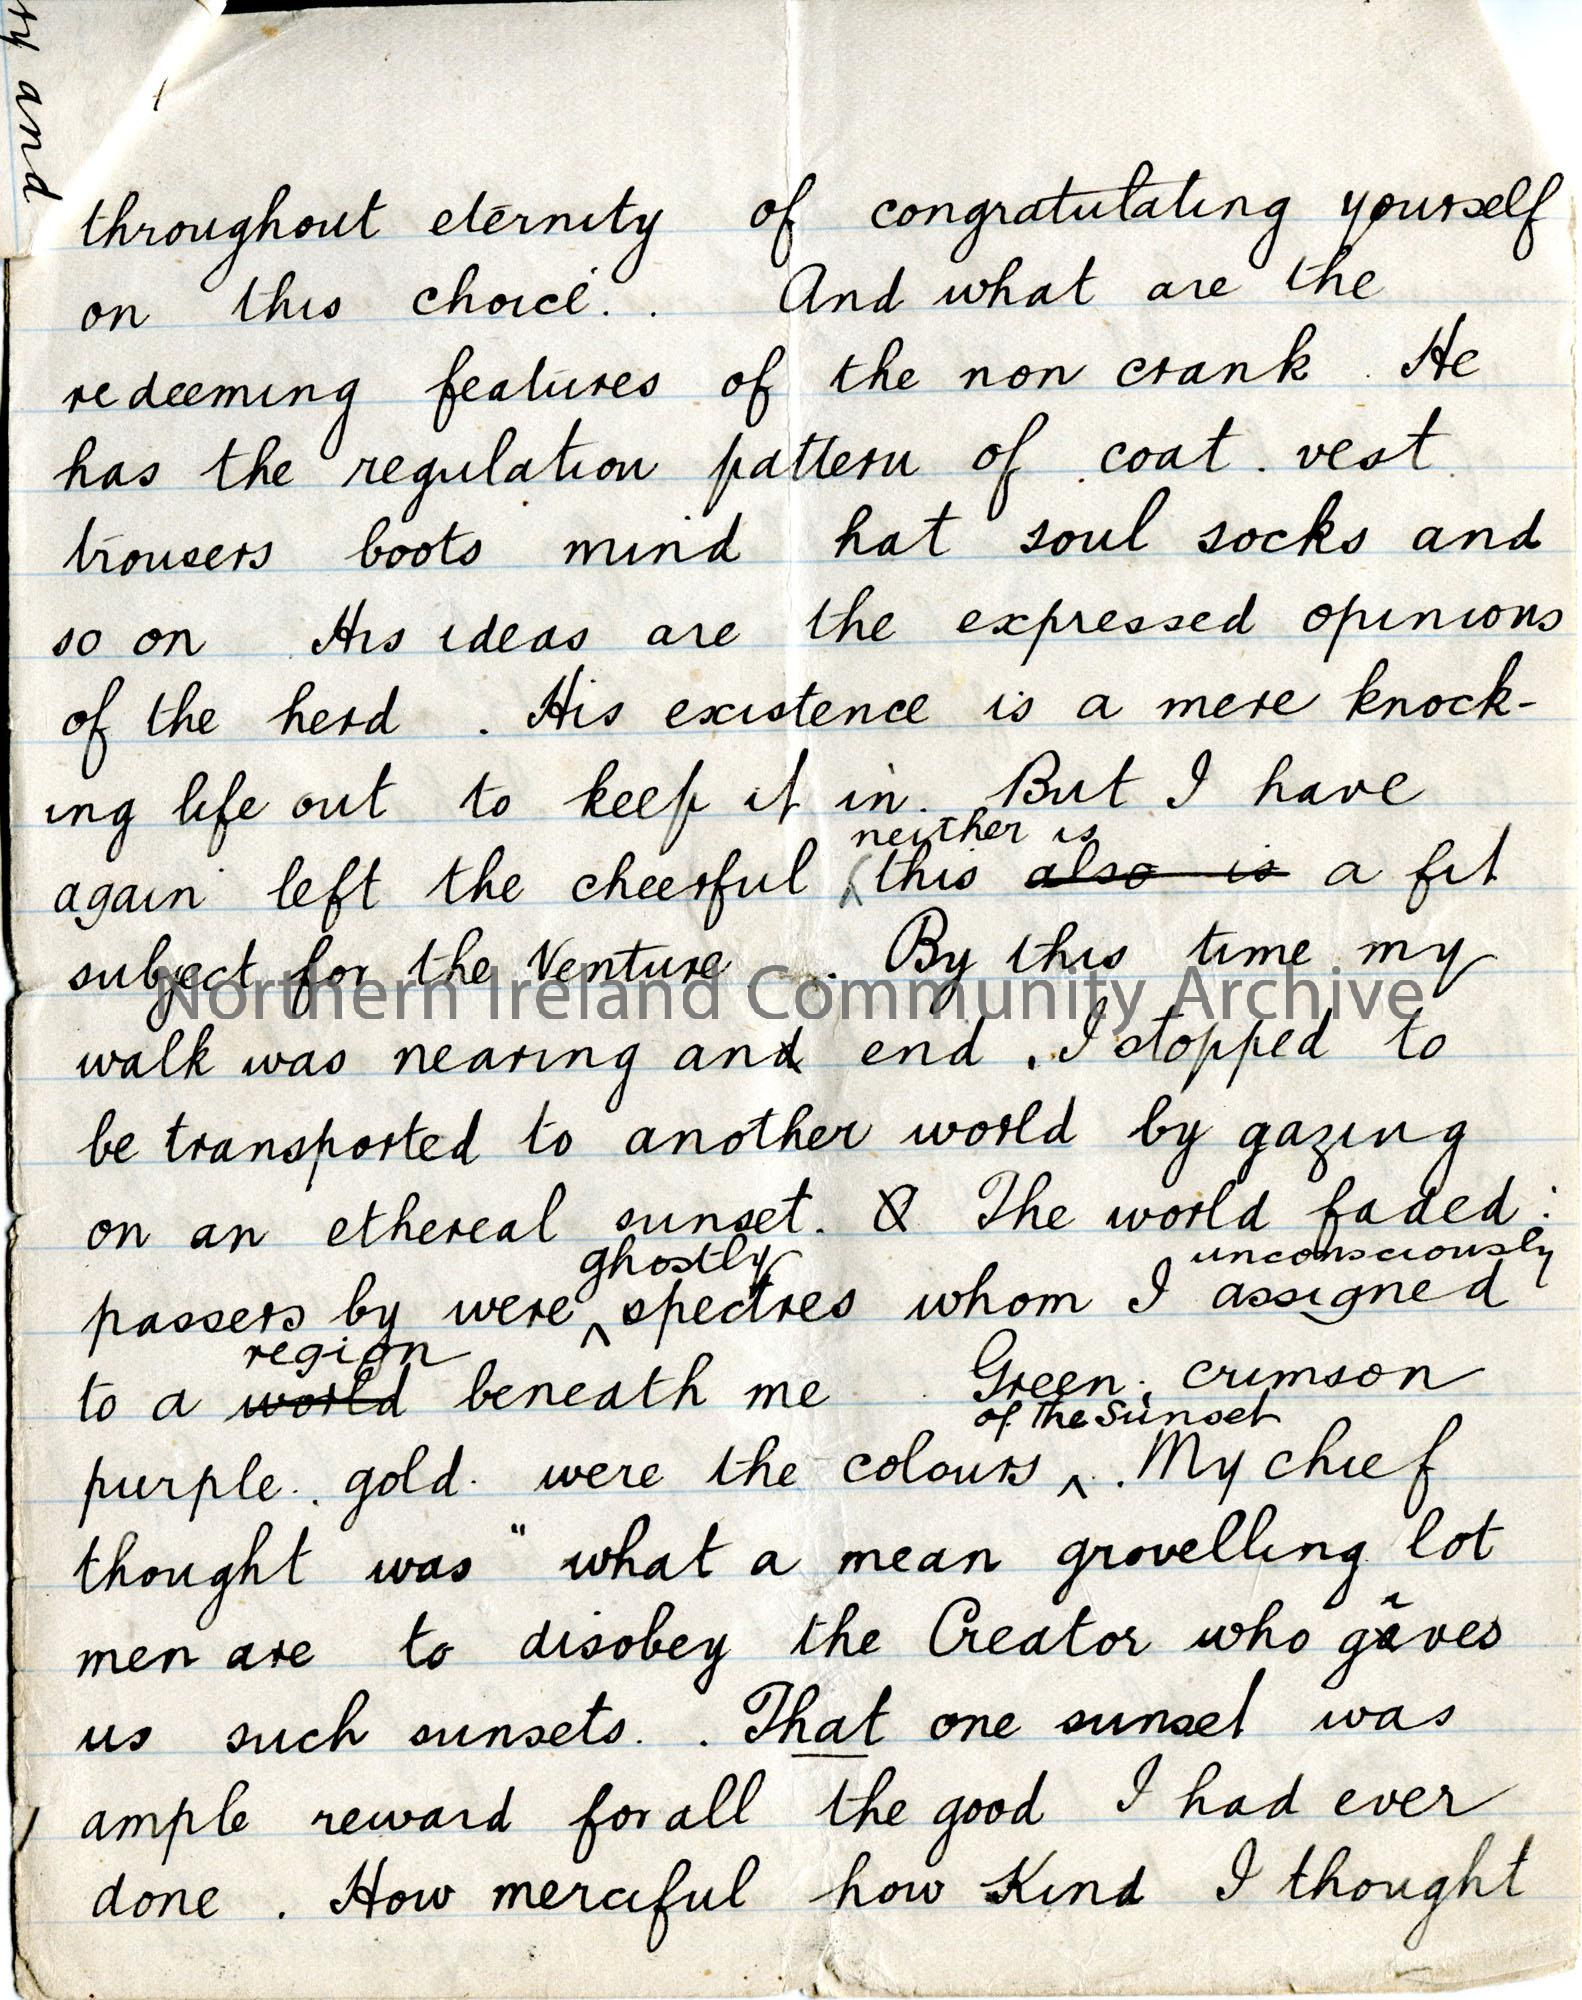 ty and
throughout eternity of congratulating yourself
on this choice. . And what are the
redeeming features of the non crank . He
has the regulation pattern of coat . vest
trousers boots mind hat soul socks and
so on . His ideas are the expressed opinions
of the herd . His existence is a mere knock-
ing life out to keep it in. But I have
neither is
again left the cheerful this also is a fit
subject for the Venture . By this time my
Northern Ireland Community Archive
walk was nearing and end . I stopped to
be transported to another world by gazing
on an ethereal sunset. The world faded :
ghostly unconsciously
passers by were ^ spectres whom I assigned
region
to a world beneath me . Green . crimson
of the sunset
purple . gold . were the colours ^ . My chief
thought was " what a mean grovelling lot
men are to disobey the Creator who gives
us such sunsets. . That one sunset was
ample reward for all the good I had ever
done . How merciful how kind I thought